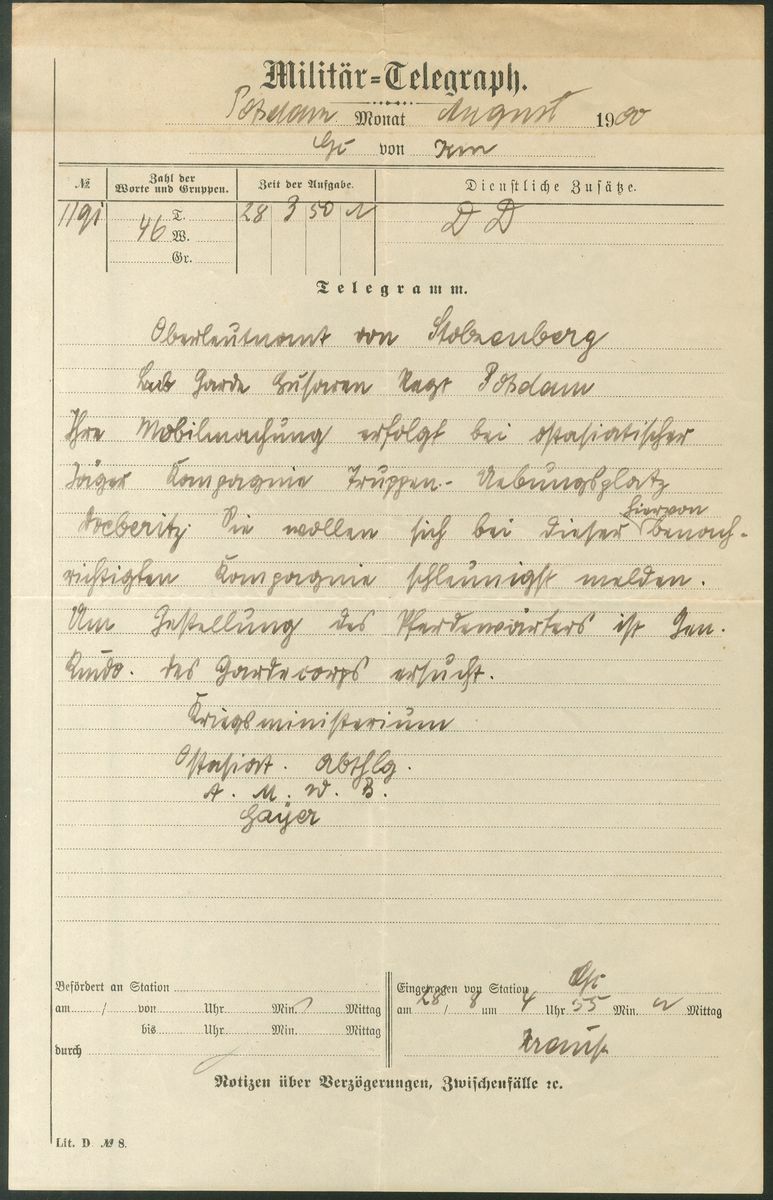 Militär=Telegraph.
Potsdam Monat August 1900
von Km
№ Zahl der Worte und Gruppen. Zeit der Aufgabe. Dienstliche Zusätze.
T. 28 3 50 D D
46 W.
Gr.
Telegramm.
Oberleutnamt von Stolzenberg
Leib Garde Husaren Regt Potsdam
Ihre Mobilmachung erfolgt bei ostasiatischer
Jäger Kompagnie Truppen- Uebungsplatz
Doeberitz. Sie wollen sich bei dieser hiervon benach-
richtigten Kompagnie schleunigst melden.
Um Gestellung des Pferdewärters ist Gen.
Kmdo. des Gardecorps ersucht.
Kriegsministerium
Ostasiat. Abthlg.
A. M. d. B.
Gayer
Befördert an Station
am / von Uhr Min. Mittag
bis Uhr Min. Mittag
durch
Eingetragen von Station
am 28/8 um 4 Uhr 55 Min. Mittag
Notizen über Verzögerungen, Zwischenfälle ꝛc.
Lit. D № 8.